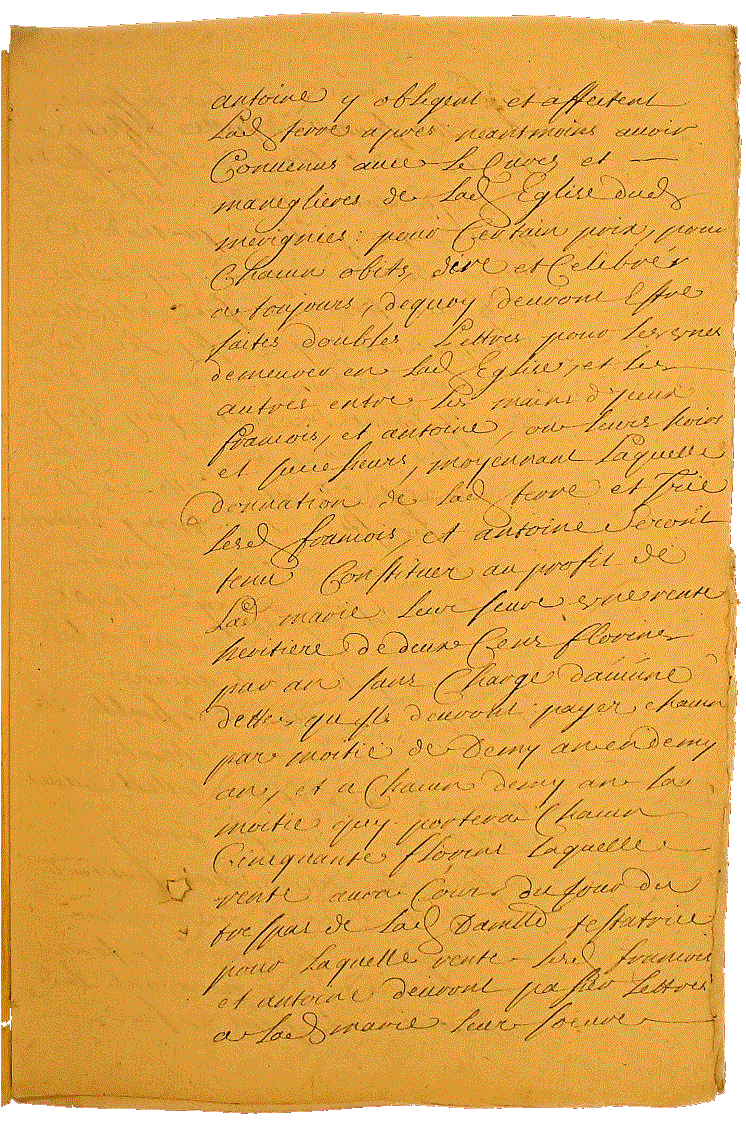 antoine y obligent et affectent
Lad terre apres neantmoins avoir
Convenus avec Le Curez et
mareglieres de Lad Eglise dud
merignies : pour Certain prix, pour
Chacun obits, dire et Celebrer
a toujours, dequoy devront Estre
faites doubles Lettres pour les unes
demeurer en Lad Eglise, et les
autres entre Les mains d'jceux
francois, et antoine, ou leurs hoirs
et successeurs, moyennant Laquelle
donnation de Lad terre et
Lesd francois, et antoine Seront
tenu Constituer au profit de
Lad marie leur seure une rente
heritiere de deux Cens florins
par an sans Charge d'aucune
dette, qu'jls devront payer chacun
par moitié de Demy an en demy
an, et a Chacun demy an La
moitie quy portera Chacun
Cincquante florins Laquelle
rente aura Cour du jour du
trespas de Lad Damlle testatrice
pour Laquelle rente Lesd francois
et antoine devront passer Lettres
a Lad marie leur soeure